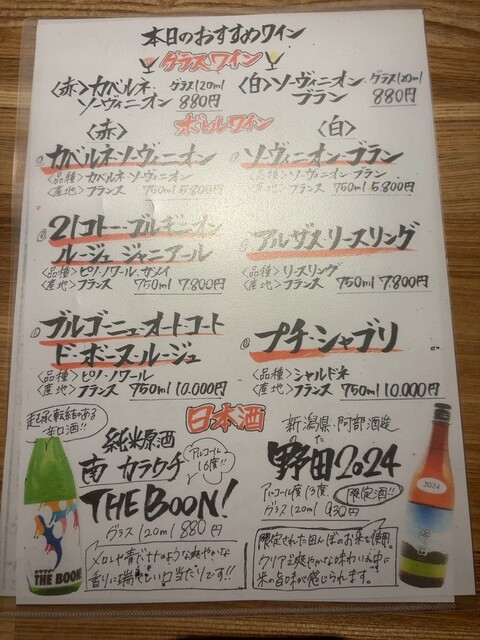 本日のおすすめワイン
グラスワイン
〈赤〉カベルネ
ソーヴィニオン
グラス120ml
880円
〈白〉ソーヴィニオン
ブラン
グラス120ml
880円
〈赤〉
ボトルワイン
〈白〉
カベルネ・ソーヴィニオン
〈品種〉カベルネ・ソーヴィニオン
〈産地〉フランス 750ml 5,800円
ソーヴィニオン ブラン
〈品種〉ソーヴィニオン ブラン
〈産地〉フランス 750ml 5,800円
21コトー・ブルギニオン
ルージュ ジャニアール
〈品種〉ピノ・ノワール、ガメイ
〈産地〉フランス 750ml 7,800円
アルザス リースリング
〈品種〉リースリング
〈産地〉フランス 750ml 7,800円
ブルゴーニュ・オート・コート
ド・ボーヌ・ルージュ
〈品種〉ピノ・ノワール
〈産地〉フランス 750ml 10,000円
プチ・シャブリ
〈品種〉シャルドネ
〈産地〉フランス 750ml 10,000円
日本酒
起承転結のある
辛口酒!!
純米原酒
南 カラクチ
アルコール
16度!!
THE BOON!
グラス120ml 880円
メロンや青バナナのような爽やかな
口当たりです!!
THE BOON
新潟県 阿部酒造
野田2024
のた
アルコール度13度
限定酒!!
グラス120ml 930円
限定された田んぼのお米を使用。
クリアで爽やかな味わいの中に
米の旨味が感じられます。
2024